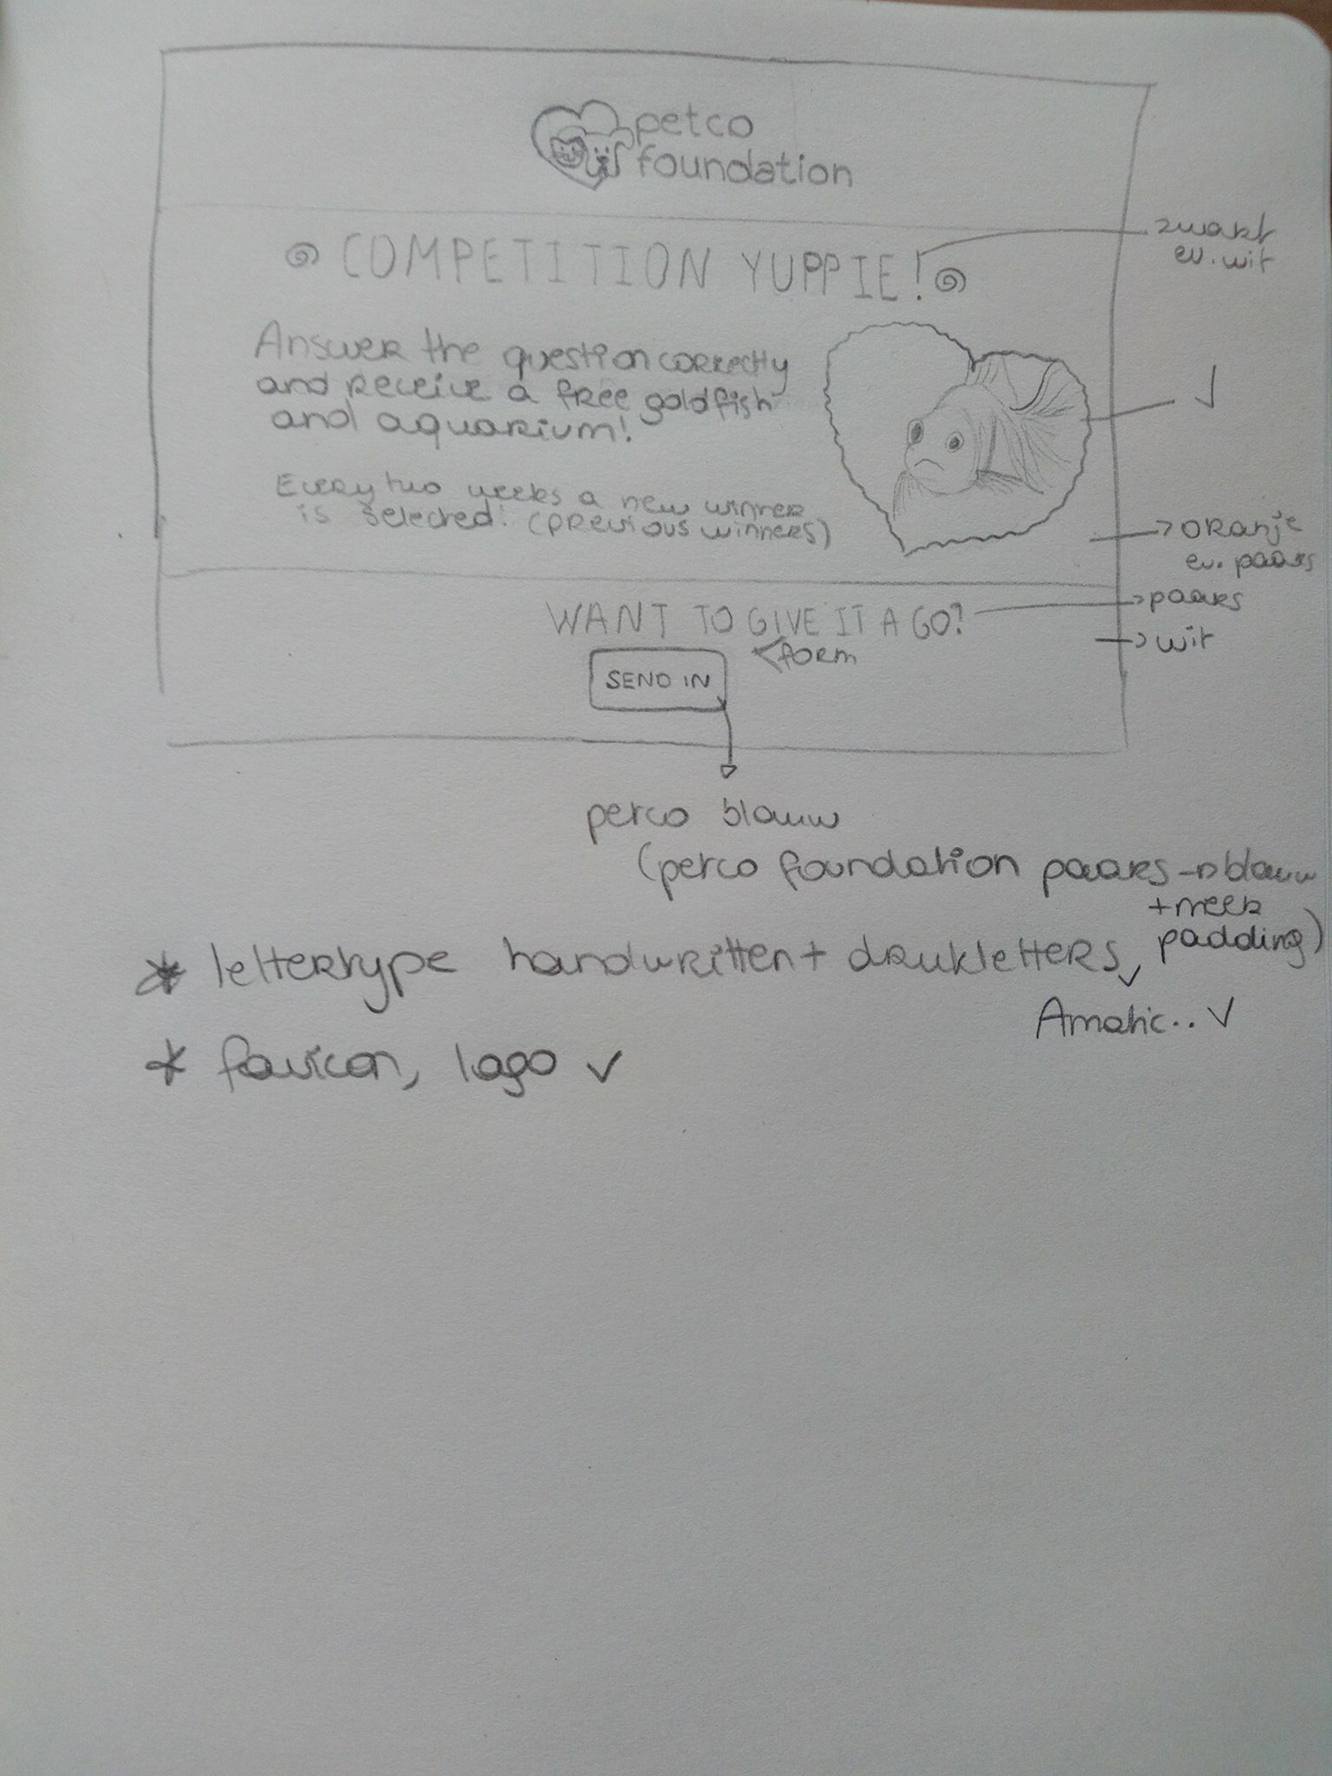 petco
foundation
COMPETITION YUPPIE!
zwart
ev. wit
Answer the question correctly
and receive a free goldfish
and aquarium!
Every two weeks a new winner
is selected! (previous winners)
oranje
ev. paars
WANT TO GIVE IT A GO?
paars
form
wit
SEND IN
petco blauw
(petco foundation paars → blauw
+ meer
padding)
* lettertype handwritten + drukletters
Amatic.. ✓
* favicon, logo ✓